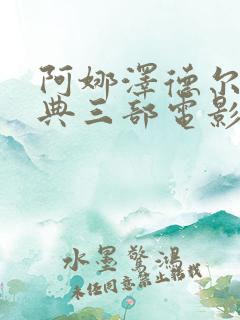 阿娜澤德尔
典三部電影
水墨驚鴻
未经同意禁止转载